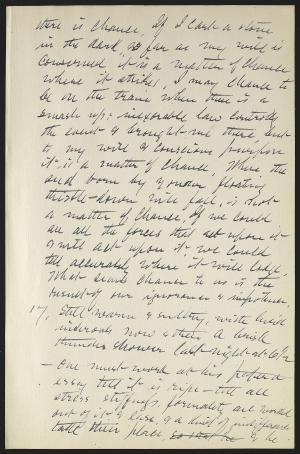 there is chance. If I cast a stone
in the dark, so far as my will is
concerned it is a matter of chance
where it strikes, I may chance to
be on the train when there is a
smash up: inexorable law controls
the event & brought me there, but
to my will & conscious purpose
it is a matter of chance. Where the
seed born by yonder floating
thistle-down will fall, is that
a matter of chance. If we could
see all the forces that act upon it
& will act upon it, we could
tell accurately where it will lodge.
What seems chance to us is the
result of our ignorance & impotence.
17, Still warm & sultry, with
now & then a brisk
thunder shower last night at 6 1/2
— One must work at his
essay till it is ripe — till all
stress stiffings, formality, are worked
out of it & ease, & a kind of indifference
take their place, & he